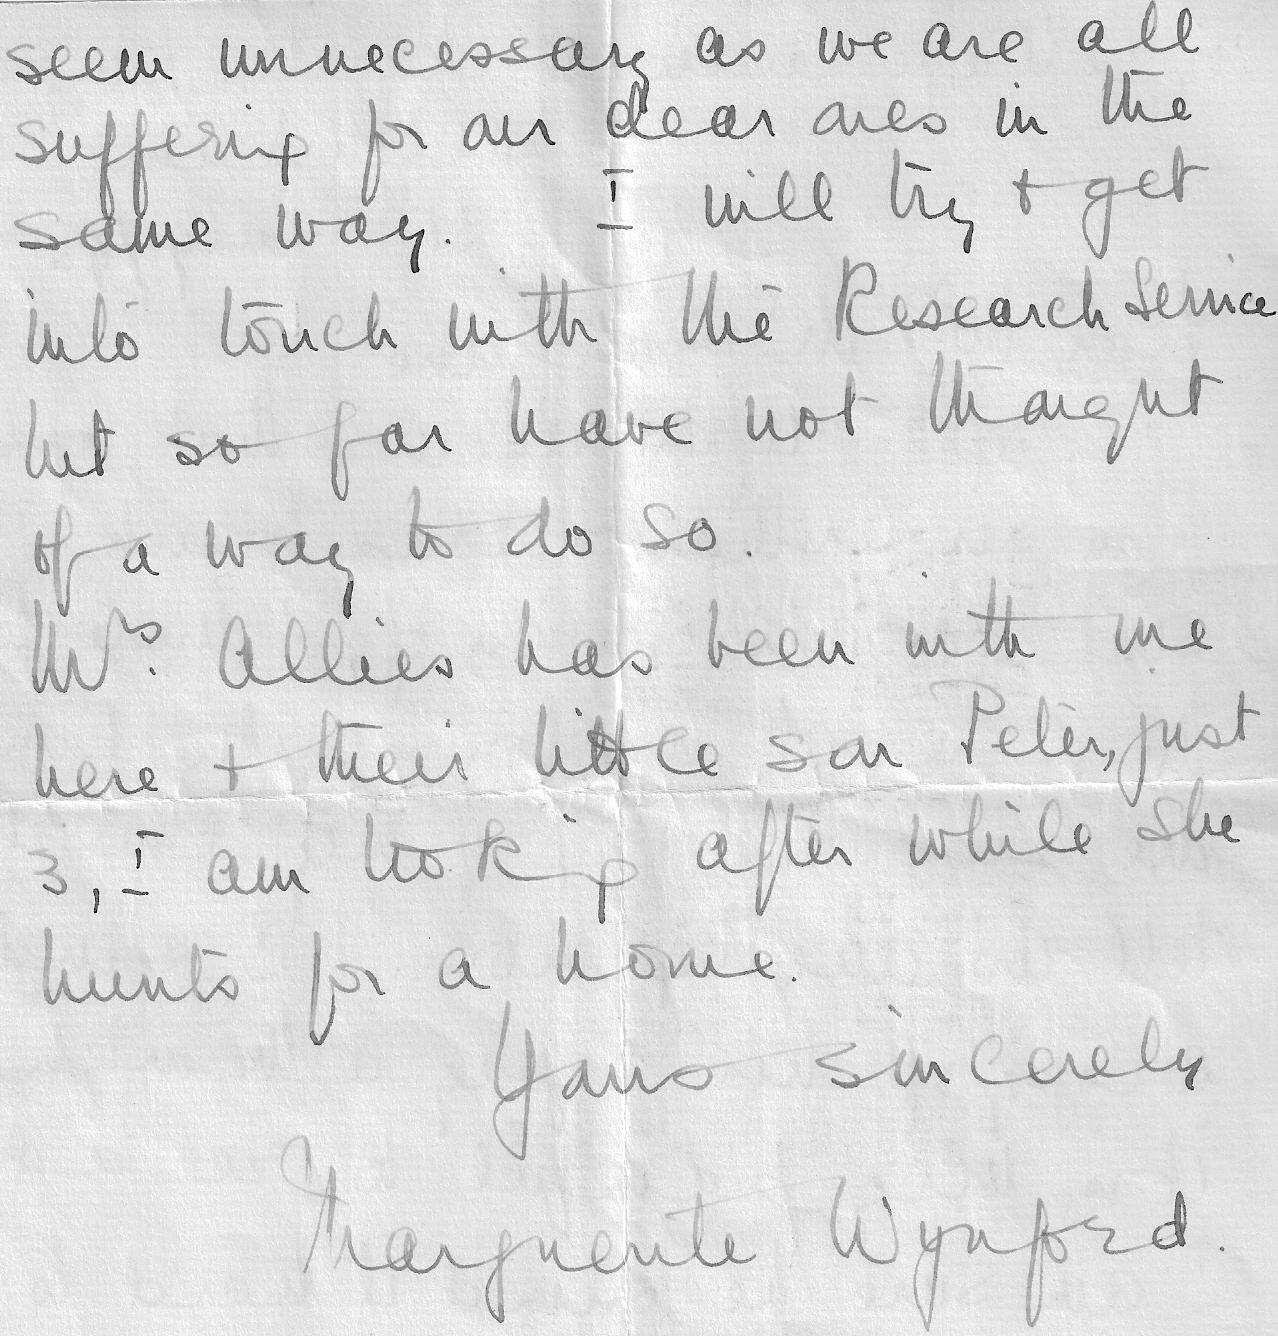 seem unnecessary as we are all
suffering for our dear ones in the
same way. I will try + get
into touch with the Research Service
but so far have not thought
of a way to do so.
Mrs. Allies has been with me
here + their little son Peter, just
3, I am looking after while she
hunts for a home.
Yours sincerely
Marguerite Wynford.